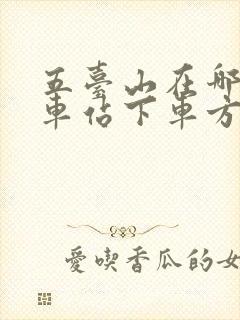 五臺山在哪
車佔下車方
愛喫香瓜的女